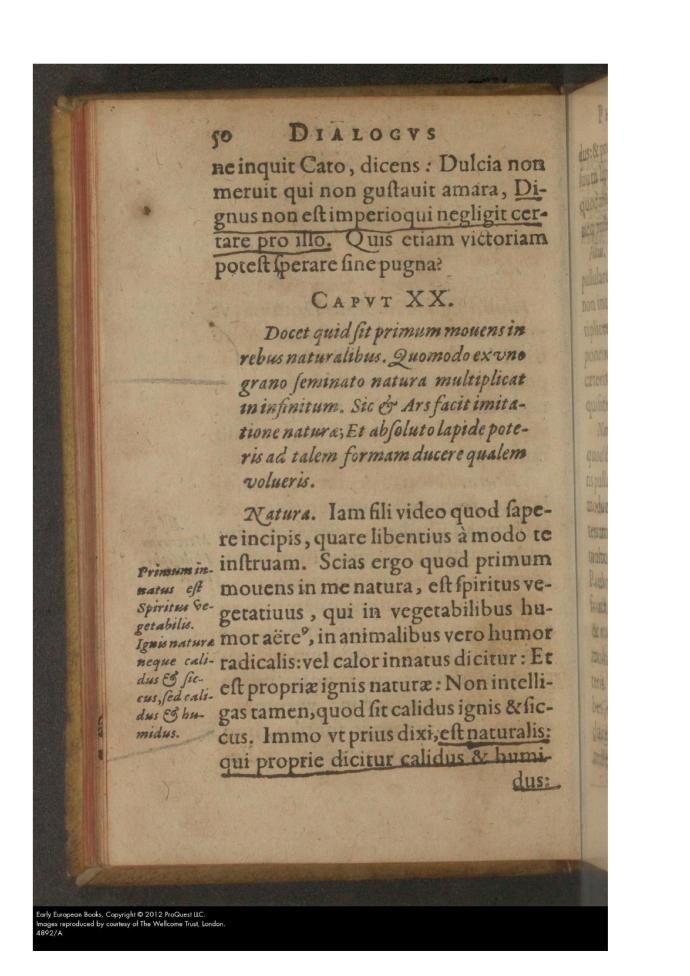 50 DIALOGVS
ne inquit Cato, dicens : Dulcia non
meruit qui non gustauit amara, Di-
gnus non est imperio qui negligit cer-
tare pro illo. Quis etiam victoriam
potest sperare sine pugna?
CAPVT XX.
Docet quid sit primum mouens in
rebus naturalibus. Quomodo ex vno
grano seminato natura multiplicat
in infinitum. Sic & Ars facit imita-
tione naturæ; Et absoluto lapide pote-
ris ad talem formam ducere qualem
volueris.
Natura. Iam fili video quod sape-
re incipis, quare libentius à modo te
instruam. Scias ergo quod primum
mouens in me natura, est spiritus ve-
getatiuus, qui in vegetabilibus hu-
mor aëreꝰ, in animalibus vero humor
radicalis: vel calor innatus dicitur : Et
est propriæ ignis naturæ: Non intelli-
gas tamen, quod sit calidus ignis & sic-
cus. Immo vt prius dixi, est naturalis:
qui proprie dicitur calidus & humi-
dus:
Primum in-
natus est
Spiritus Ve-
getabilis.
Ignis natura
neque cali-
dus & sic-
cus, sed cali-
dus & hu-
midus.
Early European Books, Copyright © 2012 ProQuest LLC.
Images reproduced by courtesy of The Wellcome Trust, London.
4892/A